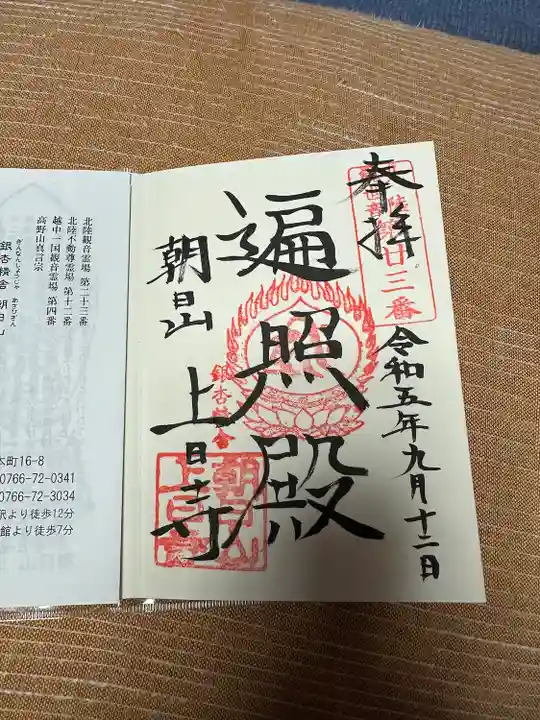 奉拝
北陸
観音
第廿三番
令和五年九月十二日
遍照殿
銀杏精舎
朝日山 上日寺
朝日山
上日寺
北陸観音霊場 第二十三番
北陸不動尊霊場 第十二番
越中一国観音霊場 第四番
高野山真言宗
ぎんなんしょうじゃ あさひざん
銀杏精舎 朝日山
本町16-8
0766-72-0341
0766-72-3034
沢より徒歩12分
館より徒歩7分